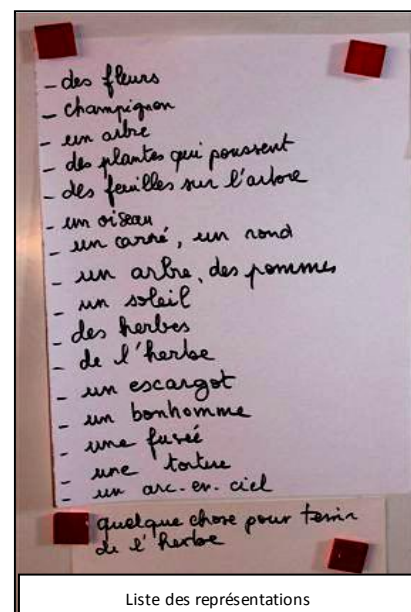 - des fleurs
- champignon
- un arbre
- des plantes qui poussent
- des feuilles sur l'arbre
- un oiseau
- un carré, un rond
- un arbre, des pommes
- un soleil
- des herbes
- de l'herbe
- un escargot
- un bonhomme
- une fusée
- une tortue
- un arc-en-ciel
quelque chose pour tenir
de l'herbe
Liste des représentations